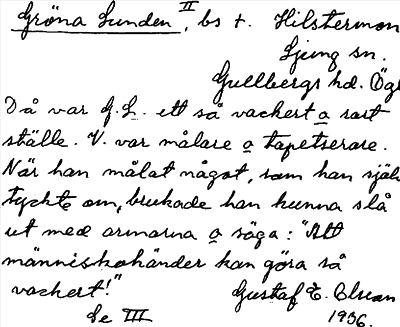 Gröna Lunden II, bs t. Hilstermon
Ljung sn.
Gullbergs hd. Ögl
Då var G. L. ett så vackert a rart
ställe. V. var målare a tapetserare.
När han målat något, som han själ
tyckte om, brukade han kunna slå
ut med armarna a säga: "Att
människohänder kan göra så
vackert!" Gustaf E. Olson
Se III 1936.